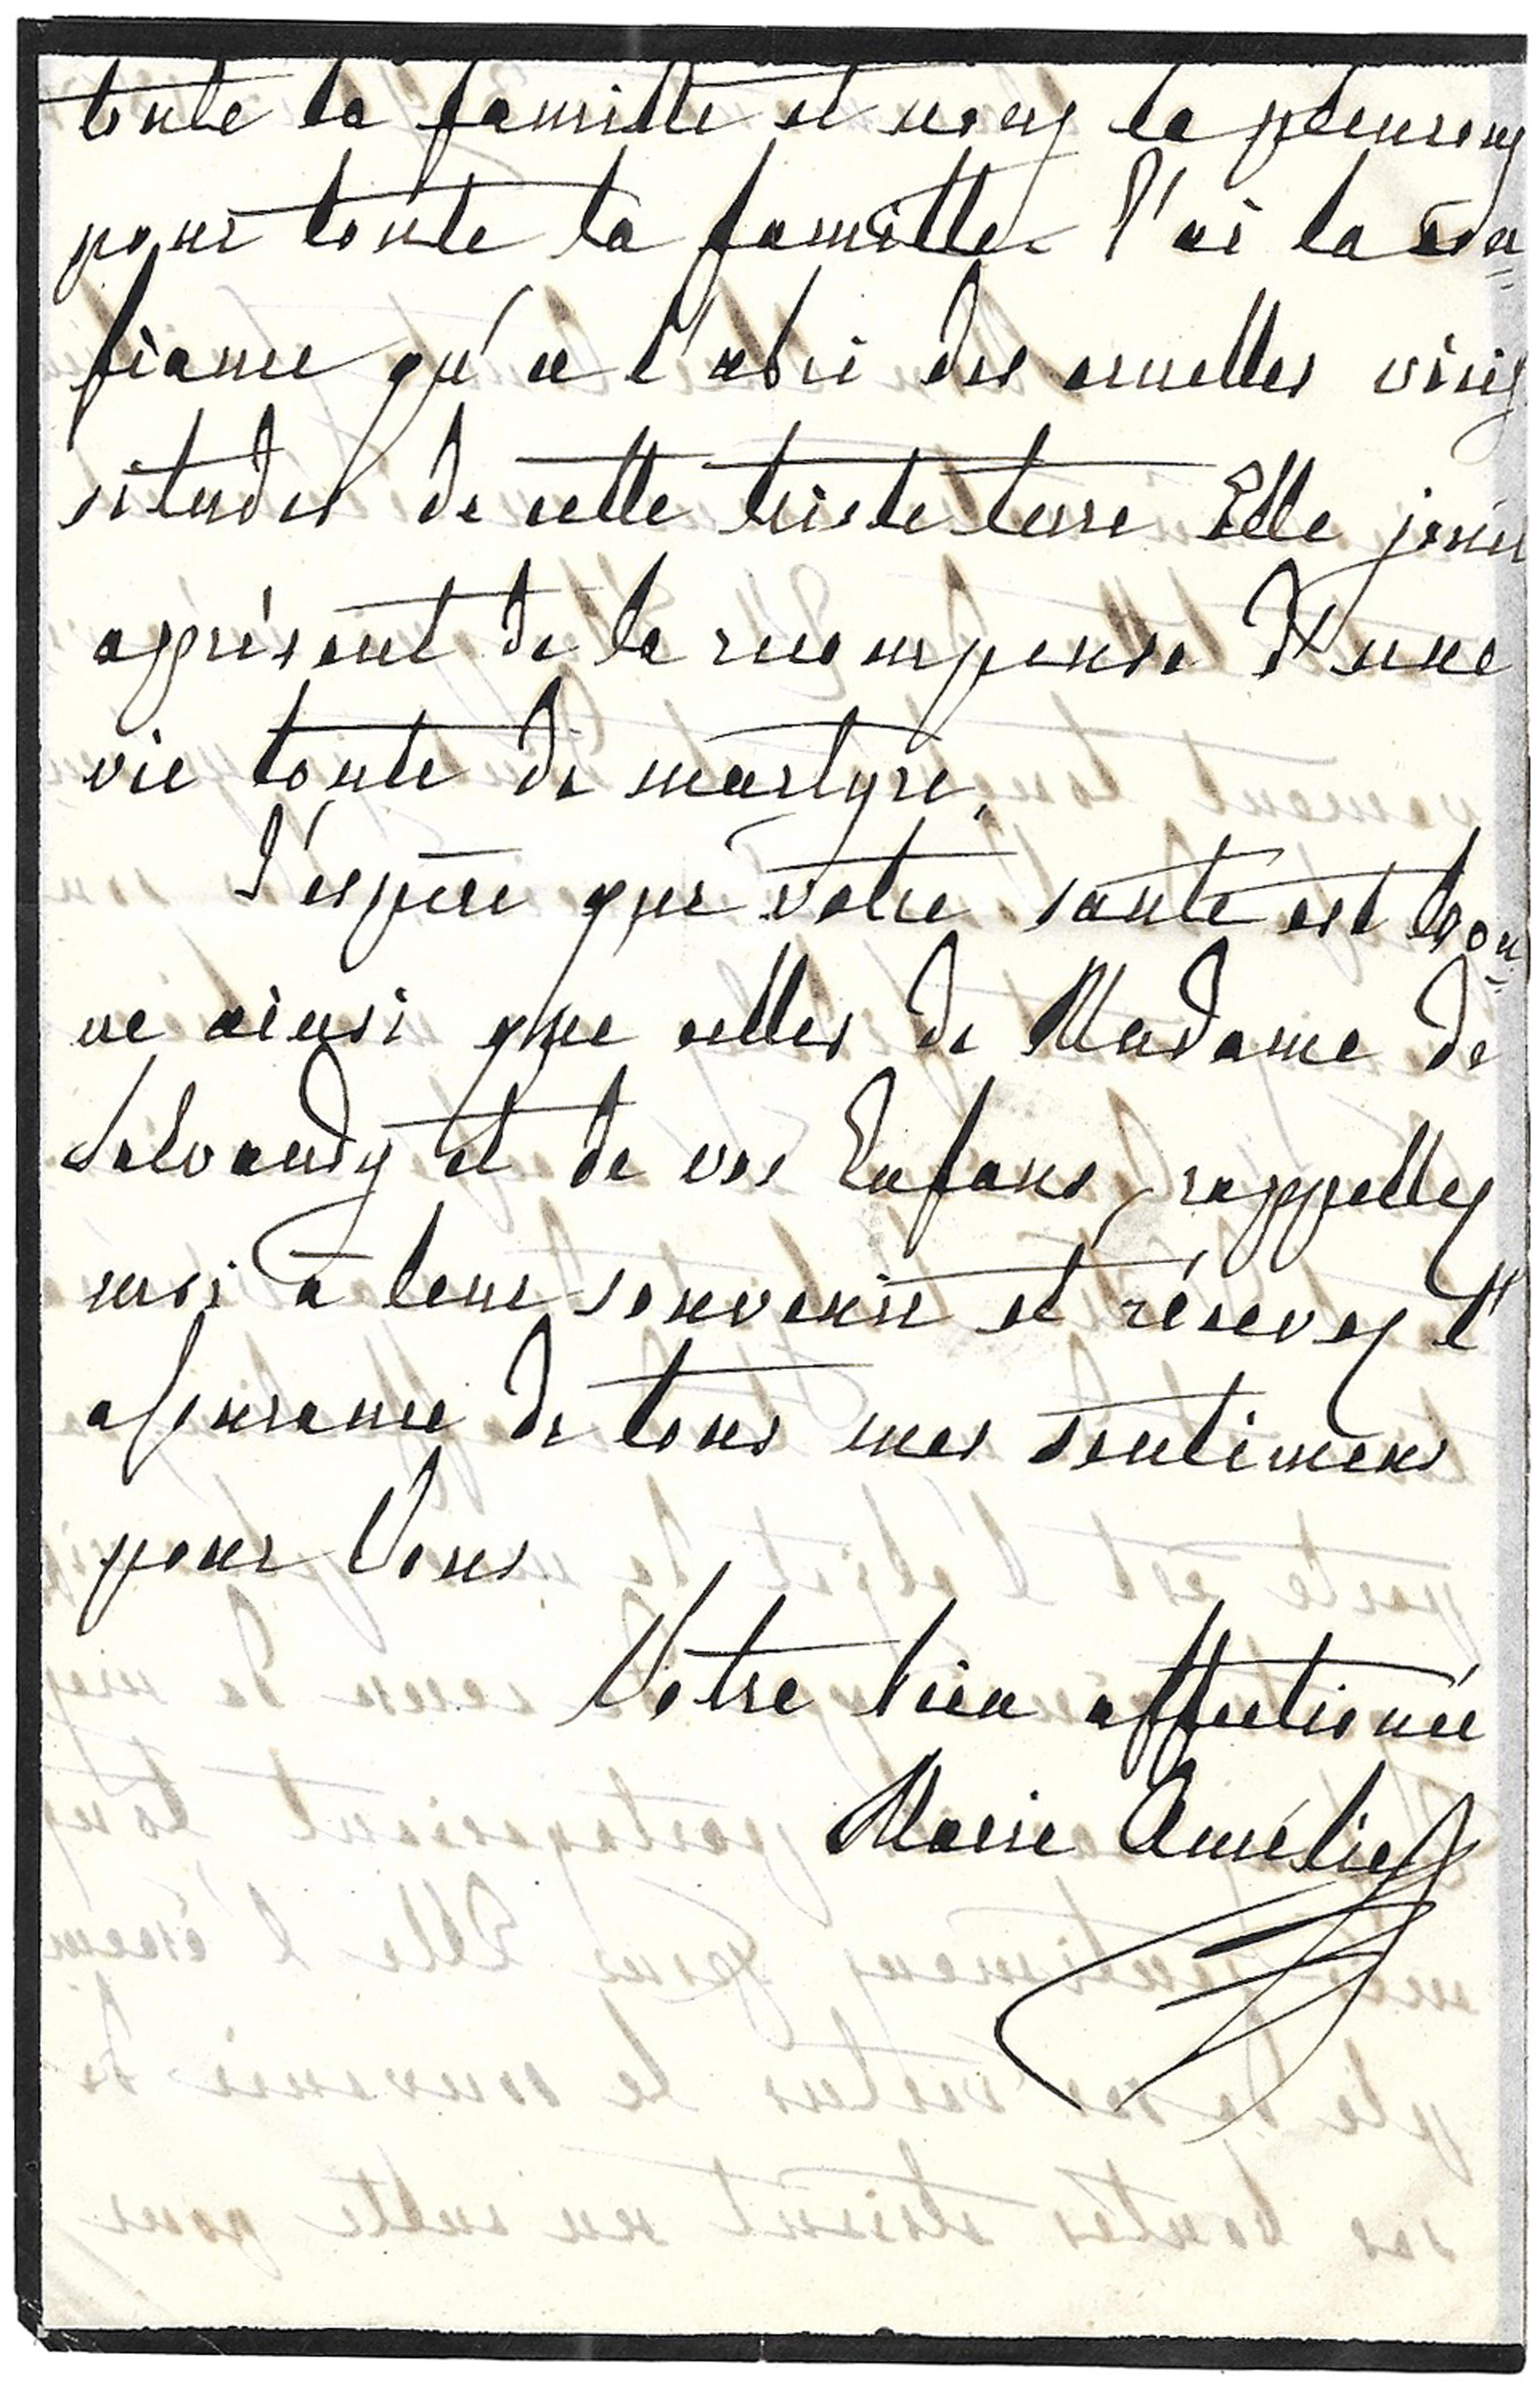 toute la famille et nous la pleurons
pour toute la famille. J'ai la con=
fiance qu'a l'abri des cruelles vicis
situdes de cette triste terre Elle jouis
apprésent de la recompense d'une
vie toute de martyre.
J'espère que votre santé est bon=
ne ainsi que celles de Madame de
Salvandy et de vos Enfans, rappellez
moi à leur souvenir et récevez l'
assurance de tous mes sentimens
pour Vous
Votre bien affectionée
Marie Amélie